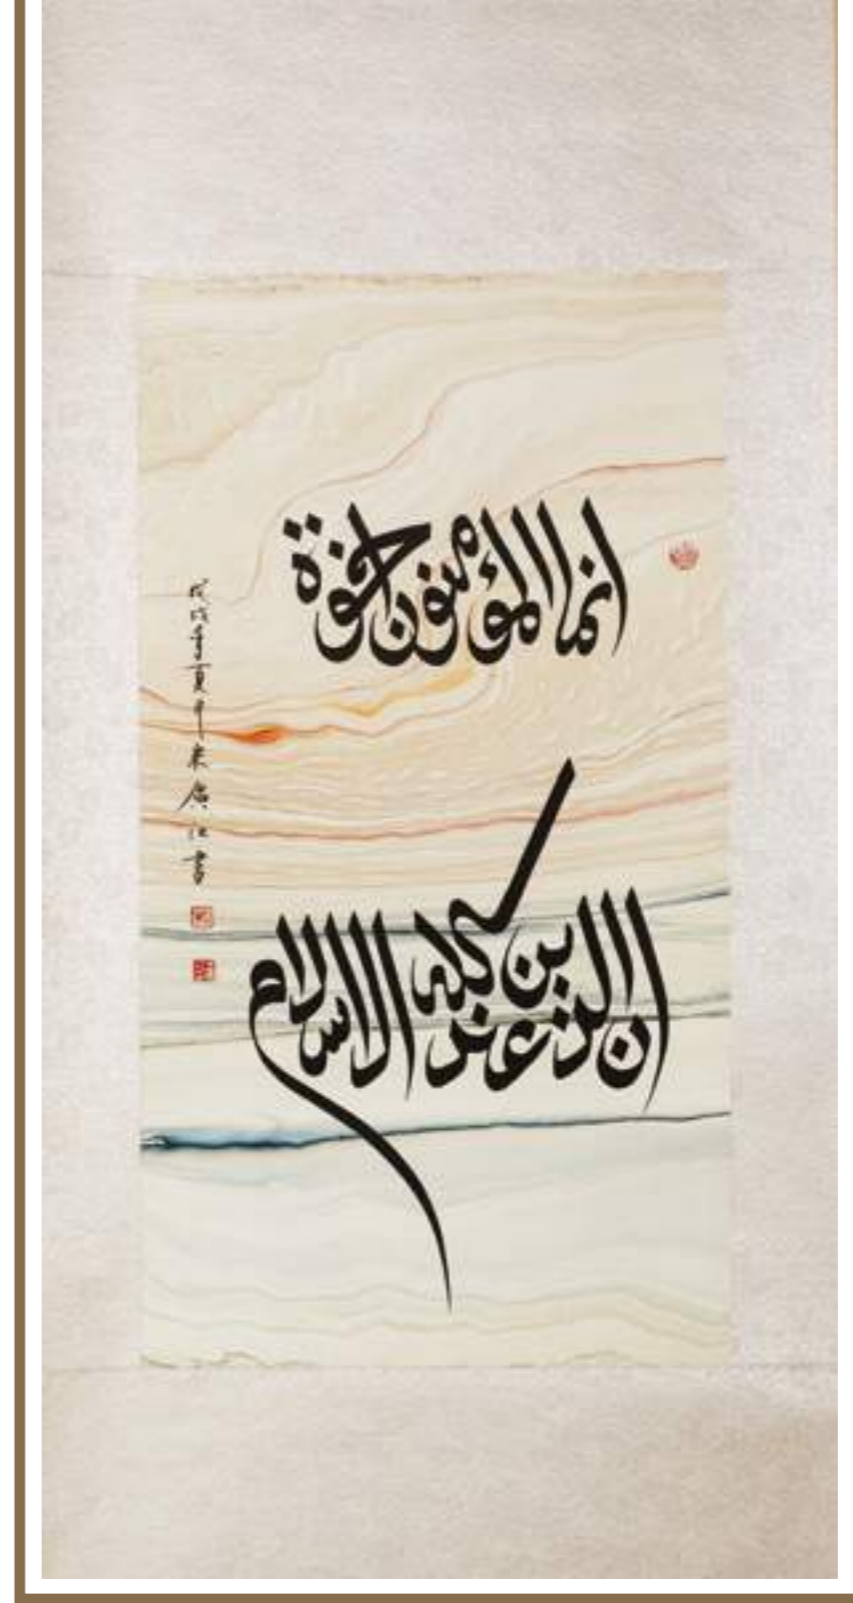 انما المؤمنون اخوة
ان الدين عند الله الاسلام
戊戌年夏年米廣江書